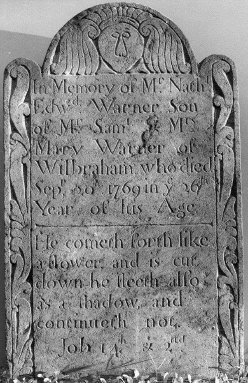 In Memory of Mr Nath
Edwd Warner Son
of Mr Saml & Mrs
Mary Warner of
Wilbraham who died
Sep 20 1769 in ye 26
Year of his Age
He cometh forth like
a flower and is cut
down he fleeth also
as a shadow and
continueth not
Job 14th & 2nd